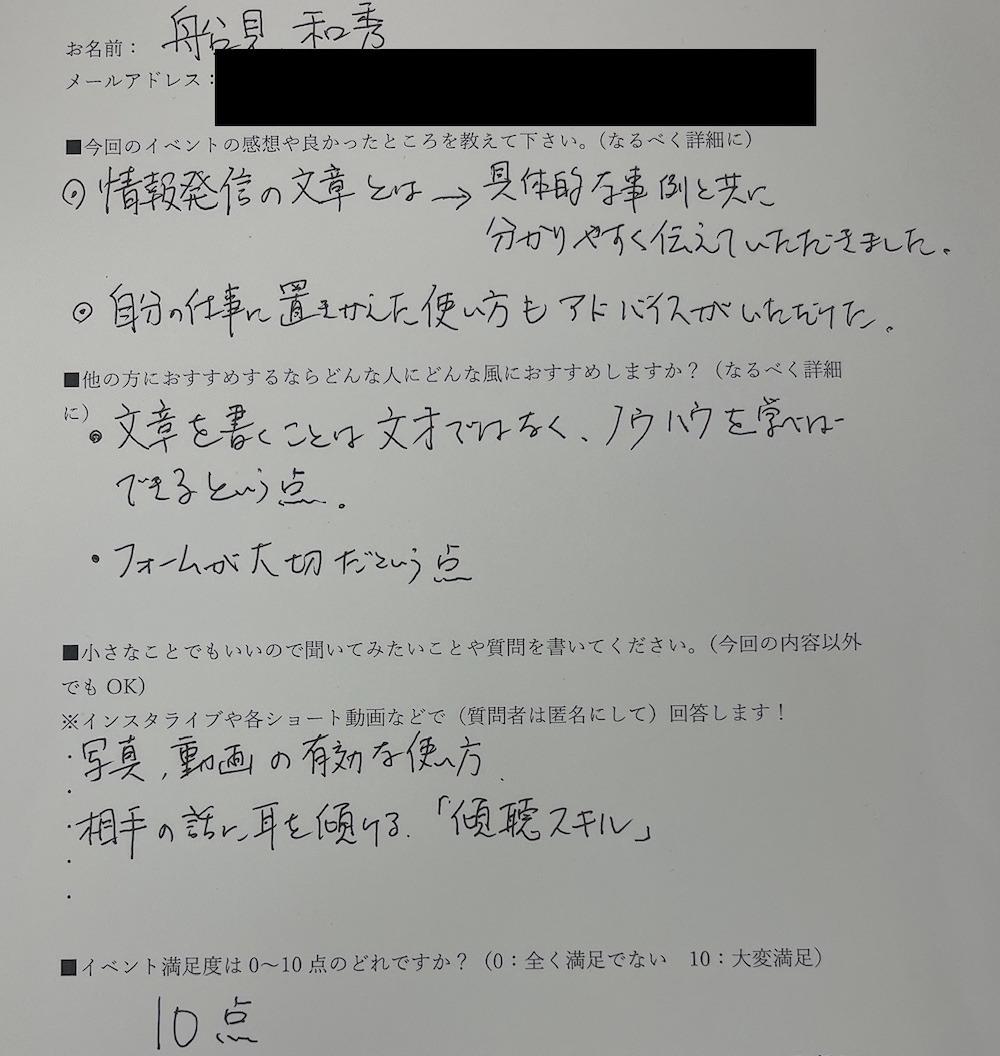 お名前： 船見 和秀
メールアドレス：
■今回のイベントの感想や良かったところを教えて下さい。（なるべく詳細に）
⦿ 情報発信の文章とは→具体的な事例と共に
分かりやすく伝えていただきました。
⦿ 自分の仕事に置きかえた使い方もアドバイスがいただけた。
■他の方におすすめするならどんな人にどんな風におすすめしますか？（なるべく詳細
に）
・文章を書くことは文才ではなく、ノウハウを学べば
できるという点。
・フォームが大切だという点
■小さなことでもいいので聞いてみたいことや質問を書いてください。（今回の内容以外
でも OK）
※インスタライブや各ショート動画などで（質問者は匿名にして）回答します！
・写真、動画の有効な使い方、
・
・相手の話に耳を傾ける、「傾聴スキル」
・
・
■イベント満足度は 0〜10 点のどれですか？（0：全く満足でない　10：大変満足）
10点